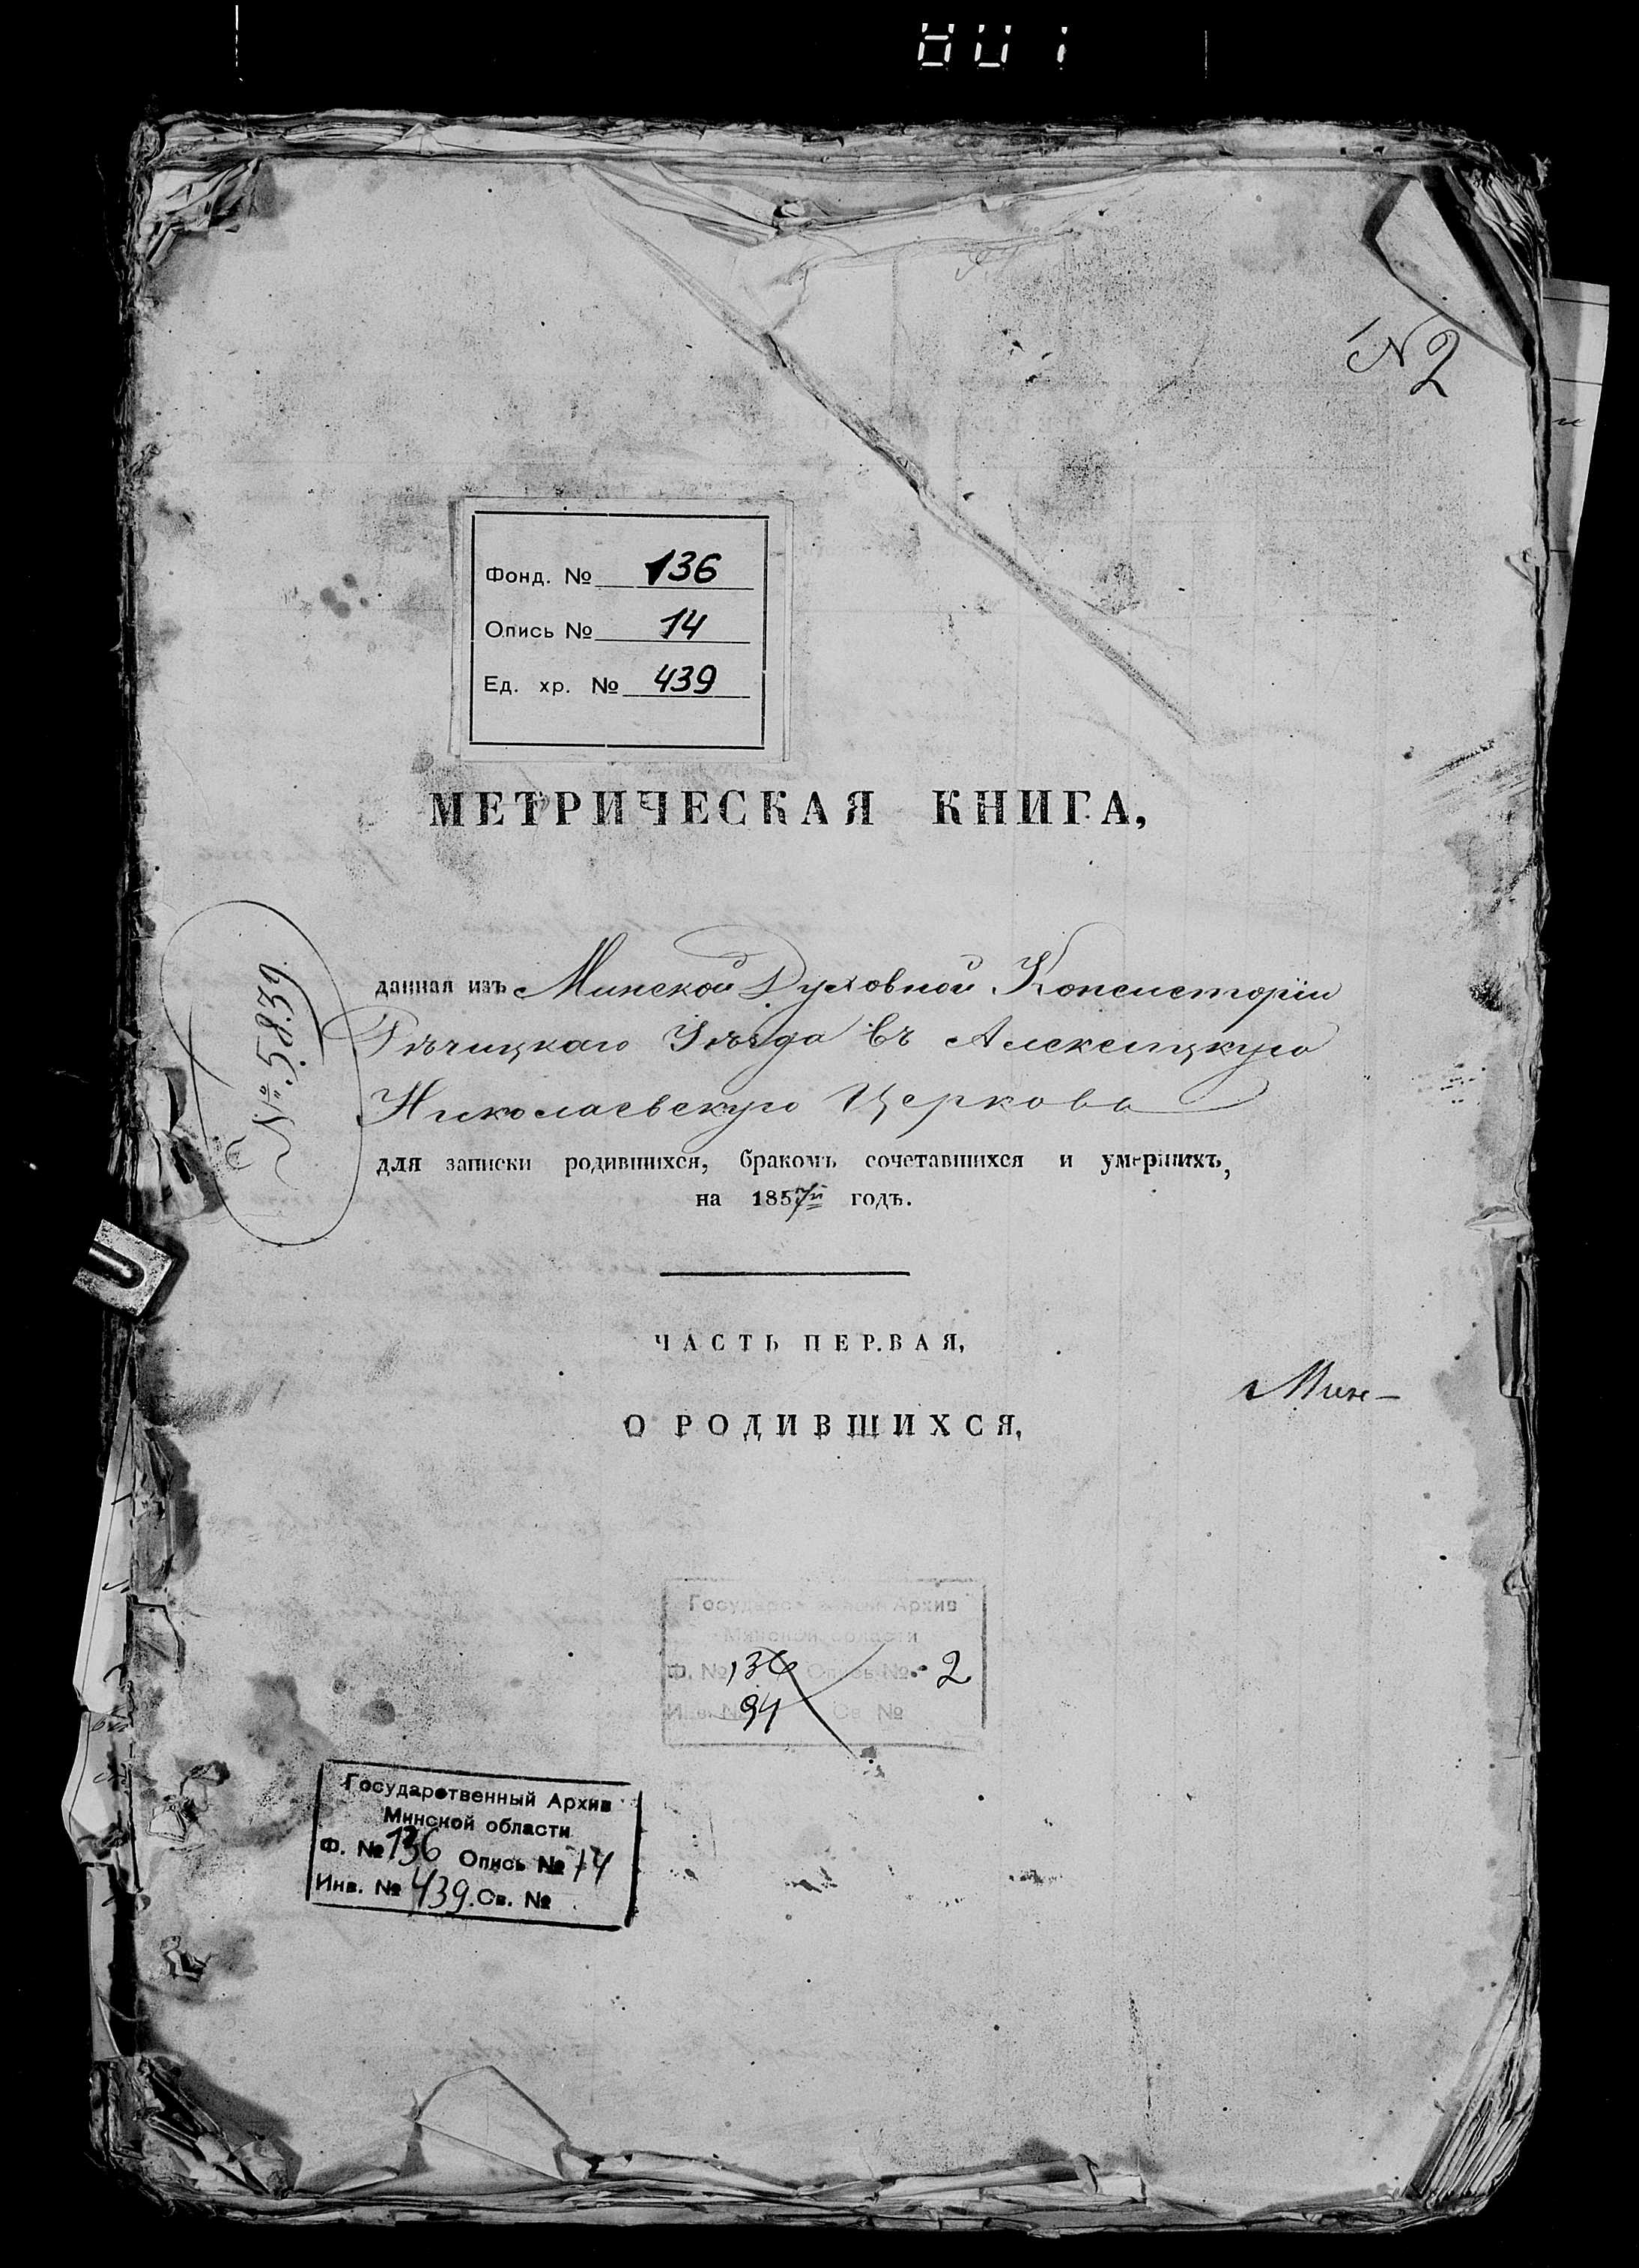 № 2
Фонд. № 136
Опись № 14
Ед. хр. № 439
МЕТРИЧЕСКАЯ КНИГА,
№ 5839
данная изъ Минской Духовной Консисторіи
Рѣчицкаго Уѣзда въ Алексицкую
Николаевскую Церковь
для записки родившихся, бракомъ сочетавшихся и умершихъ,
на 1857й годъ.
ЧАСТЬ ПЕРВАЯ,
Мин-
О РОДИВШИХСЯ,
Государственный Архив
Минской области
Ф. № 136 Опись № 2
Инв. № 94 Св. №
Государственный Архив
Минской области
Ф. № 136 Опись № 14
Инв. № 439 Св. №